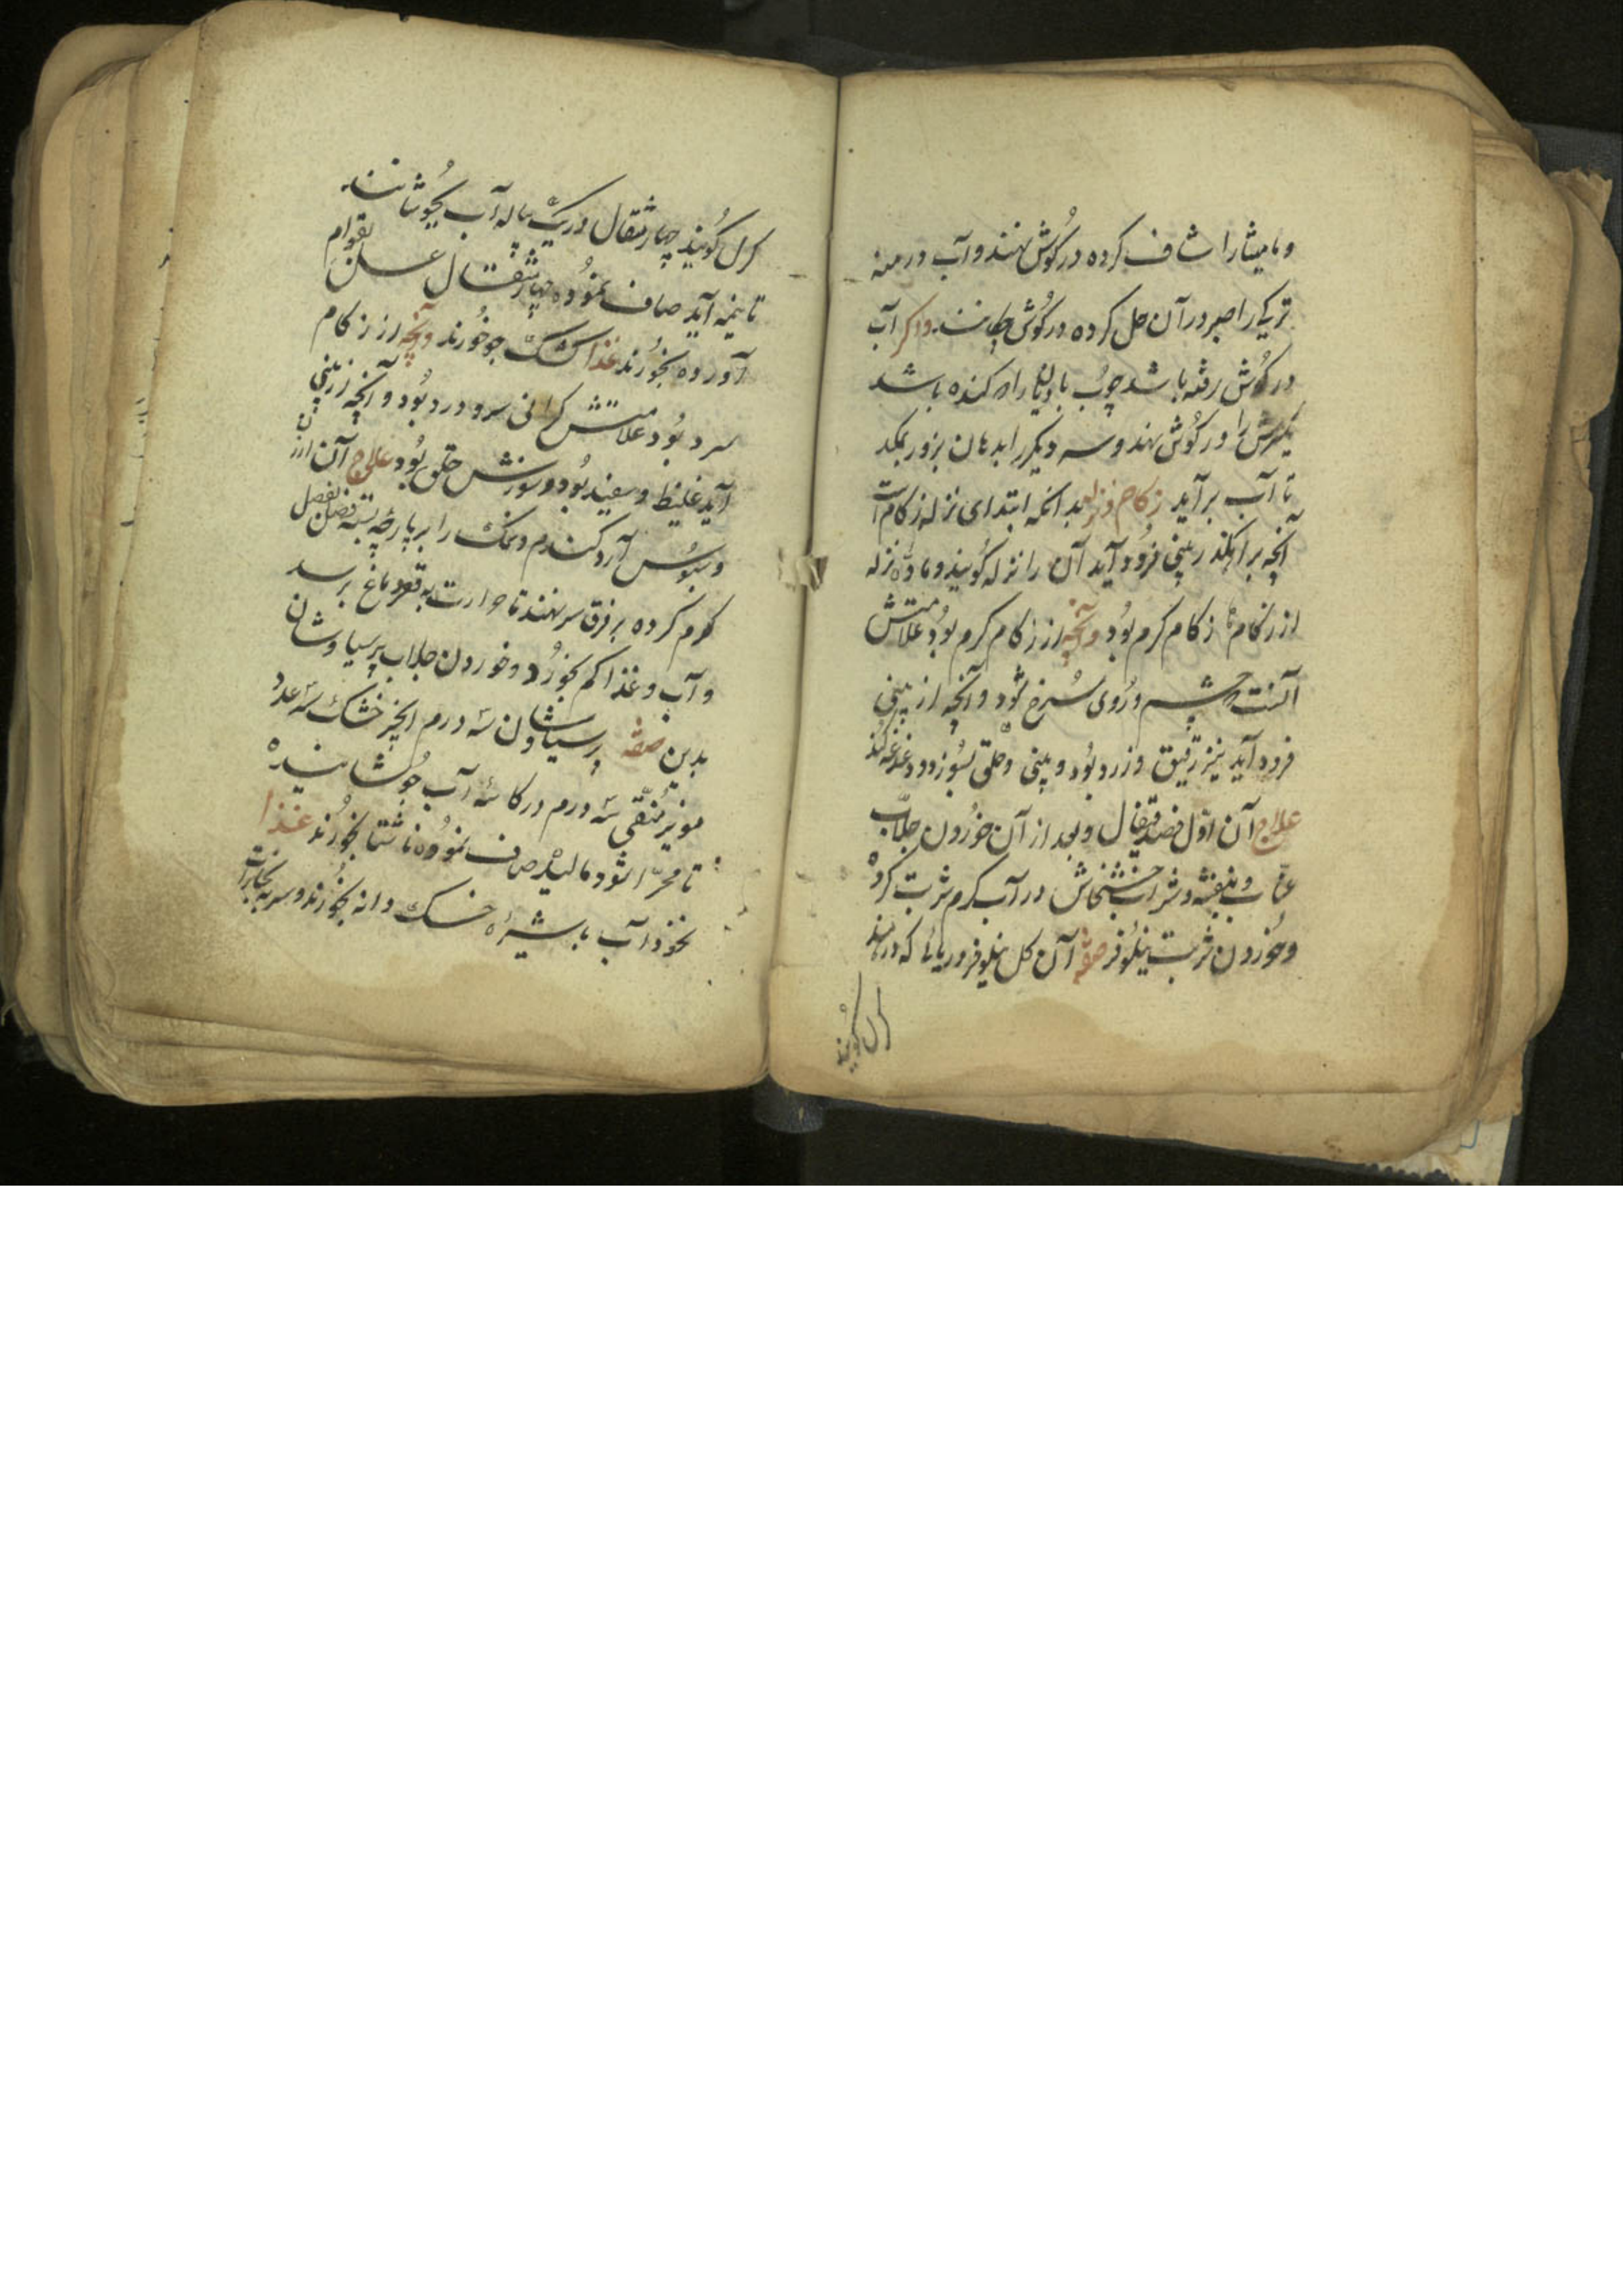 و مامیثا را شاف کرده در گوش نهند و آب درمنه
ترکی را صبر در آن حل کرده در گوش چکانند و اگر آب
در گوش رفته باشد چوب بادیان را که کنده باشد
یکسرش را در گوش نهند و سر دیگر را بدهان بزور بمکد
تا آب برآید زکام و نزله بدانکه ابتدای نزله زکام است
آنچه براه بینی فرود آید آن را نزله گویند و ماده نزله
از زکام تا زکام گرم بود و آنچه از زکام گرم بود علامتش
آنست که چشم و روی سرخ شود و آنچه از بینی
فرود آید نیز رقیق و زرد بود و بینی و حلق بسوزد و دغدغه کند
علاج آن اول فصد قیفال و بعد از آن خوردن جلاب
عناب و بنفشه و شراب خشخاش در آب گرم شربت کرده
و خوردن شربت نیلوفر صفة آن گل نیلوفر دریائی که در هند
کرل گویند
کرل گویند چهار مثقال در یک پیاله آب بجوشانند
تا نیمه آید صاف نموده چهار مثقال عسل بقوام
آورده بخورند غذا کشک جو خورند و آنچه از زکام
سرد بود علامتش گرانی سر و درد بود و آنچه از بینی
آید غلیظ و سفید بود و سوزش حلق بود علاج آن ارزن
و سبوس آرد گندم و نمک را بر پارچه بسته فصل بفصل
گرم کرده بر فرق سر نهند تا حرارت به قعر دماغ برسد
و آب و غذا کم بخورد و خوردن جلاب پرسیاوشان
بدین صفة پرسیاوشان سه درم انجیر خشک سه عدد
مویز منقی سه درم در کاسه آب جوشانیده
تا مهرا شود مالیده صاف نموده ناشتا بخورند غذا
نخود آب با شیره خسک دانه بخورند و سر به بخارات